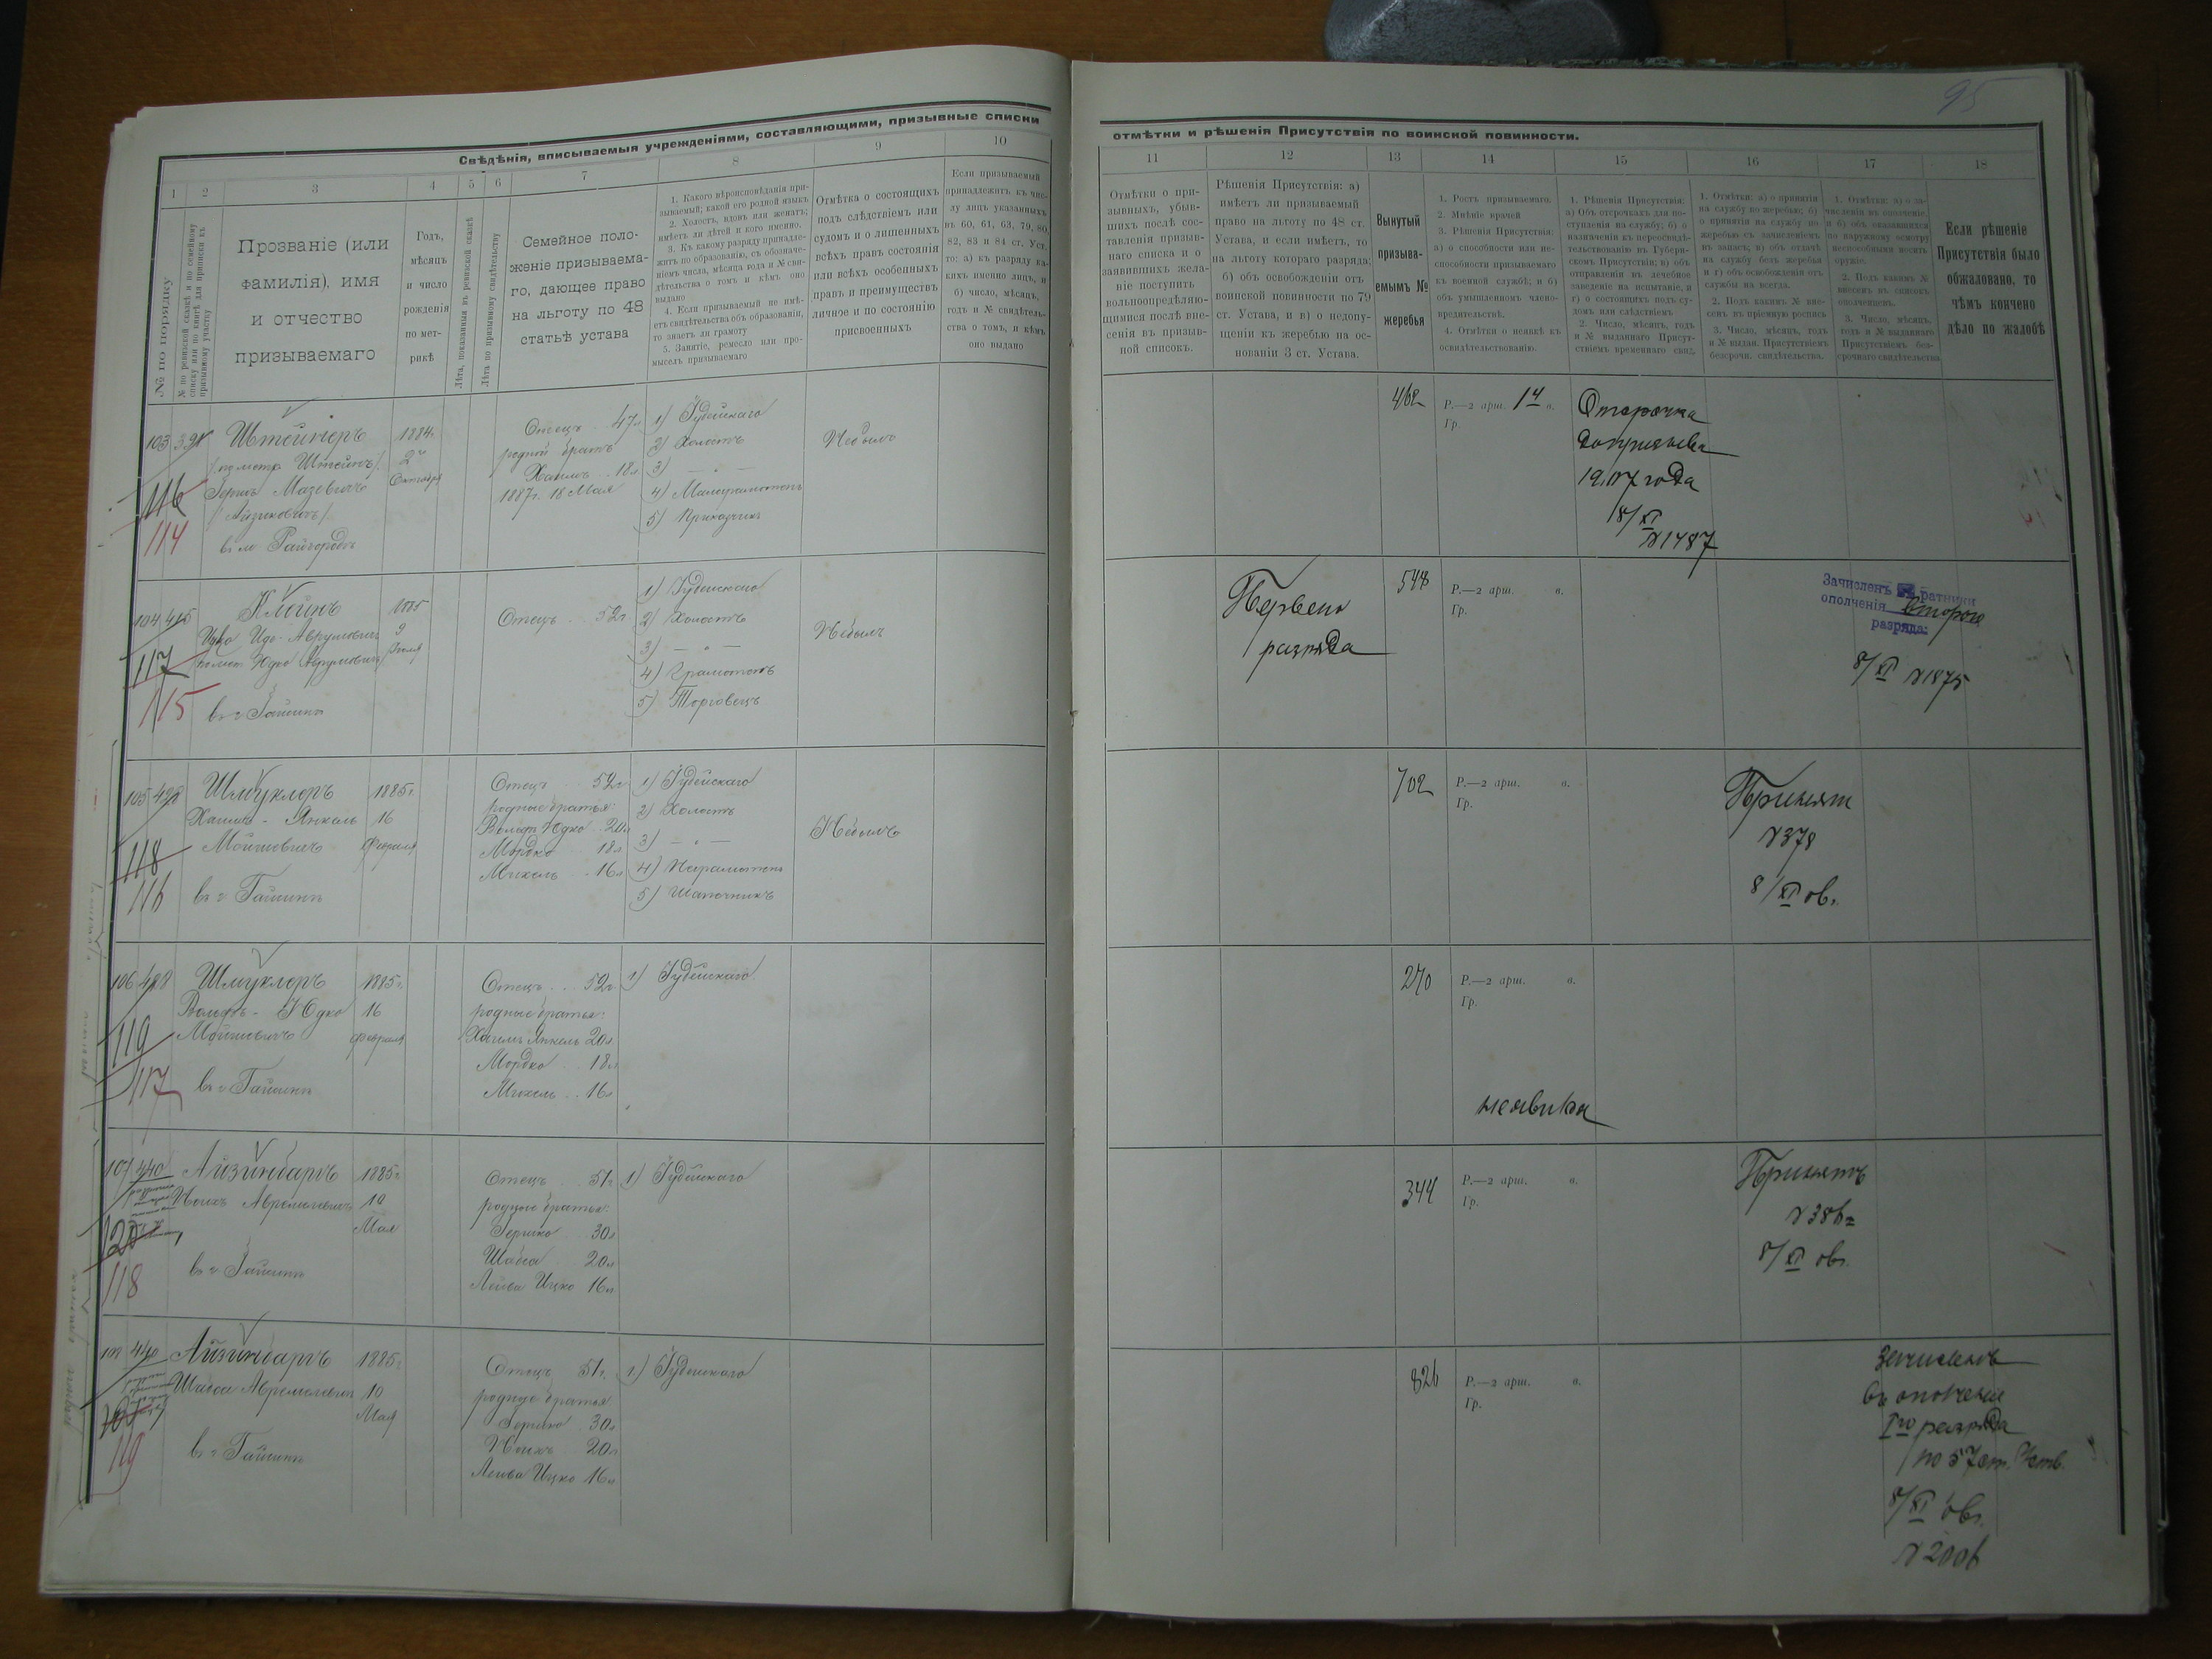 95
Свѣдѣнія, вписываемыя учрежденіями, составляющими, призывные списки
1 2 3 4 5 6 7 8 9 10
№ по порядку
№ по ревизской сказкѣ и по семейному списку или по книгѣ для приписки къ призывному участку
Прозваніе (или
фамилія), имя
и отчество
призываемаго
Годъ,
мѣсяцъ
и число
рожденія
по мет-
рикѣ
Лѣта, показанныя въ ревизской сказкѣ
Лѣта по призывному свидѣтельству
Семейное поло-
женіе призываема-
го, дающее право
на льготу по 48
статьѣ устава
1. Какого вѣроисповѣданія при-
зываемый; какой его родной языкъ
2. Холостъ, вдовъ или женатъ;
имѣетъ ли дѣтей и кого именно.
3. Къ какому разряду принадле-
житъ по образованію, съ обозначе-
ніемъ числа, мѣсяца года и № сви-
дѣтельства о томъ и кѣмъ оно
выдано
4. Если призываемый не имѣ-
етъ свидѣтельства объ образованіи,
то знаетъ ли грамоту
5. Занятіе, ремесло или про-
мыселъ призываемаго
Отмѣтка о состоящихъ
подъ слѣдствіемъ или
судомъ и о лишенныхъ
всѣхъ правъ состоянія
или всѣхъ особенныхъ
правъ и преимуществъ
личное и по состоянію
присвоенныхъ
Если призываемый
принадлежитъ къ чис-
лу лицъ указанныхъ
въ 60, 61, 63, 79, 80,
82, 83 и 84 ст. Уст.
то: а) къ разряду ка-
кихъ именно лицъ, и
б) число, мѣсяцъ,
годъ и № свидѣтель-
ства о томъ, и кѣмъ
оно выдано
103
116
114
Штейнеръ
/по метр. Штейнъ/
Герш Мазевичъ
/Айзиковичъ/
въ м Райгородѣ
1884г.
2го
Октября
Отецъ 47л
родной братъ
Хаимъ 18л
1887г. 18 Мая
1) Іудейскаго
2) Холостъ
3) — " —
4) Малограмотенъ
5) Приказчикъ
Небылъ
104 415
117
115
Клейнъ
Абрумовичъ
Юдко Абрумовичъ
въ г Гайсинѣ
1885
9
Отецъ 52г.
1) Іудейскаго
2) Холостъ
3) — " —
4) Грамотенъ
5) Торговецъ
Небылъ
105 428
118
116
Шмуклеръ
Хаимъ - Янкель
Мошковичъ
въ г Гайсинѣ
1885г.
16
Февраля
Отецъ 52г
родные братья:
Вольф Юдко 20л
Мордко 18л
Михель 16л
1) Іудейскаго
2) Холостъ
3) — " —
4) Неграмотенъ
5) Шапочникъ
Небылъ
106 428
119
117
Шмуклеръ
Вольфъ - Юдко
Мошковичъ
въ г Гайсинѣ
1885г.
16
Февраля
Отецъ 52г.
родные братья:
Хаимъ Янкель 20л
Мордко 18л
Михель 16л
1) Іудейскаго
107 440
120
118
Айзинбаргъ
Авремелевичъ
въ г Гайсинѣ
1885г
10
Мая
Отецъ 51г
родные братья:
Гершко 30л
Шабса 20л
Лейба Ицко 16л
1) Іудейскаго
108 440
119
Айзинбаргъ
Шабса Авремелевичъ
въ г Гайсинѣ
1885г
10
Мая
Отецъ 51г.
родные братья
Гершко 30л
20л
Лейба Ицко 16л
1) Іудейскаго
отмѣтки и рѣшенія Присутствія по воинской повинности.
11 12 13 14 15 16 17 18
Отмѣтки о при-
зывныхъ, убыв-
шихъ послѣ сос-
тавленія призыв-
наго списка и о
заявившихъ жела-
ніе поступить
вольноопредѣляю-
щимися послѣ вне-
сенія въ призыв-
ной списокъ.
Рѣшенія Присутствія: а)
имѣетъ ли призываемый
право на льготу по 48 ст.
Устава, и если имѣетъ, то
на льготу котораго разряда;
б) объ освобожденіи отъ
воинской повинности по 79
ст. Устава, и в) о недопу-
щеніи къ жеребью на ос-
нованіи 3 ст. Устава.
Вынутый
призыва-
емымъ №
жеребья
1. Ростъ призываемаго.
2. Мнѣніе врачей
3. Рѣшенія Присутствія:
а) о способности или не-
способности призываемаго
къ военной службѣ; и б)
объ умышленномъ члено-
вредительствѣ.
4. Отмѣтки о неявкѣ къ
освидѣтельствованію.
1. Рѣшенія Присутствія:
а) Объ отсрочкахъ для по-
ступленія на службу; б) о
назначеніи къ переосвидѣ-
тельствованію въ Губерн-
скомъ Присутствіи; в) объ
отправленіи въ лечебное
заведеніе на испытаніе, и
г) о состоящихъ подъ су-
домъ или слѣдствіемъ
2. Число, мѣсяцъ, годъ
и № выданнаго Присутс-
твіемъ временнаго свид.
1. Отмѣтки: а) о принятіи
на службу по жеребью; б)
о принятіи на службу по
жеребью съ зачисленіемъ
въ запасъ; в) объ отдачѣ
на службу безъ жеребья
и г) объ освобожденіи отъ
службы на всегда.
2. Подъ какимъ № вне-
сенъ въ пріемную роспись
3. Число, мѣсяцъ, годъ
и № выдан. Присутствіемъ
безсрочн. свидѣтельства.
1. Отмѣтки: а) о за-
численіи въ ополченіе,
и б) объ оказавшихся
по наружному осмотру
неспособными носить
оружіе.
2. Подъ какимъ №
внесенъ въ списокъ
ополченцевъ.
3. Число, мѣсяцъ,
годъ и № выданнаго
Присутствіемъ без-
срочнаго свидѣтельства
Если рѣшеніе
Присутствія было
обжаловано, то
чѣмъ кончено
дѣло по жалобѣ
462
Р.—2 арш. 14 в.
Гр.
Отсрочка
до призыва
1907 года
8/XI
№1487
Перваго
разряда
548
Р.—2 арш. в.
Гр.
Зачисленъ въ ратники
ополченія второго
разряда:
8/XI №1875
702
Р.—2 арш. в.
Гр.
Принятъ
№378
8/XI 06г.
270
Р.—2 арш. в.
Гр.
неявился
344
Р.—2 арш. в.
Гр.
Принятъ
№386
8/XI 06г.
826
Р.—2 арш. в.
Гр.
Зачисленъ
въ ополченіе
Iго разряда
по 57 ст. Уств.
8/XI 06г.
№2006